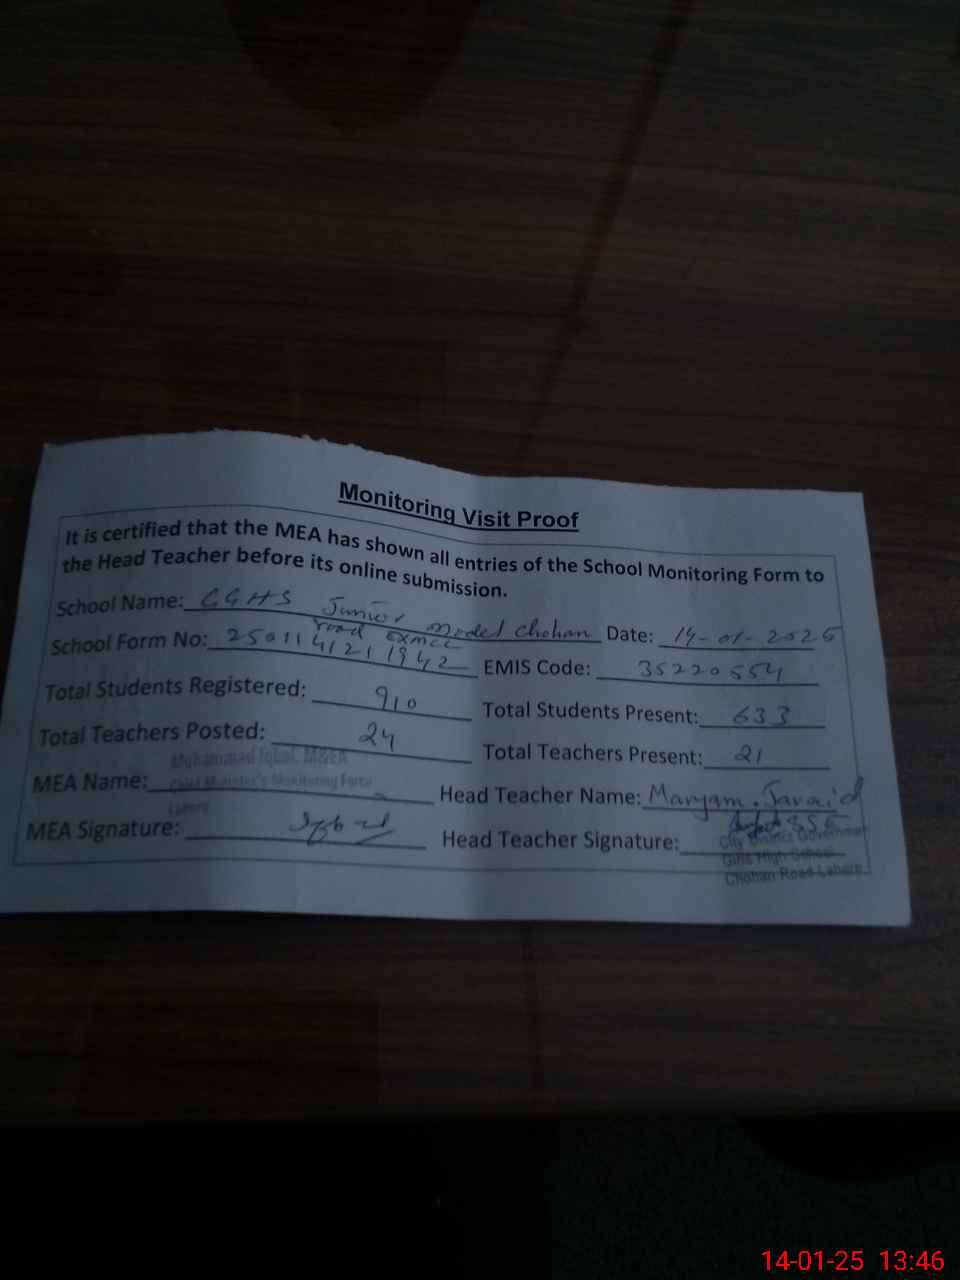 Monitoring Visit Proof
It is certified that the MEA has shown all entries of the School Monitoring Form to
the Head Teacher before its online submission.
School Name: GGHS Junior Model Chohan Date: 14-01-2025
road exmcl
School Form No: 2501141211942 EMIS Code: 35220554
Total Students Registered: 910 Total Students Present: 633
Total Teachers Posted: 24 Total Teachers Present: 21
Muhammad Iqbal, M&EA
MEA Name: Chief Minister's Monitoring Force Head Teacher Name: Maryam Javaid
Lahore
MEA Signature: Iqbal Head Teacher Signature: SSE
City District Government
Girls High School
Chohan Road Lahore
14-01-25 13:46